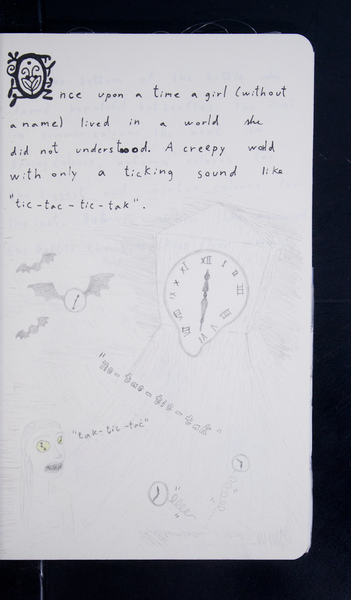 Once upon a time a girl (without
a name) lived in a world she
did not understood. A creepy wold
with only a ticking sound like
"tic-tac-tic-tak".
XII I II III VI VIII IX X XI
"tic-tac-tic-tak"
"tak-tic-tac"